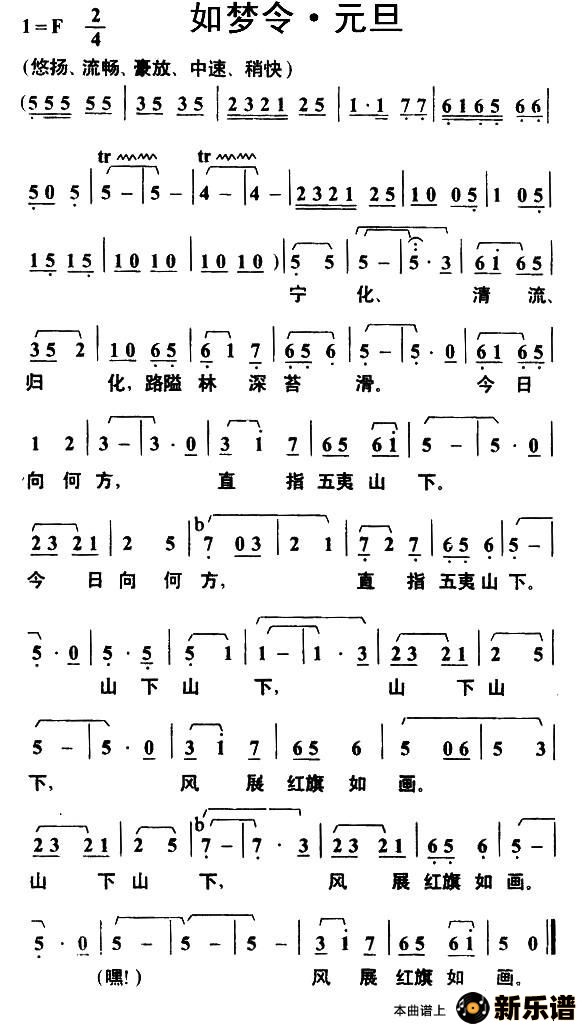 如梦令·元旦
1=F 2/4
(悠扬、流畅、豪放、中速、稍快)
(5 5 5 5 5 | 3 5 3 5 | 2 3 2 1 2 5 | 1 · 1 7 7 | 6 1 6 5 6 6 |
tr tr
5 0 5 | 5 – | 5 – | 4 – | 4 – | 2 3 2 1 2 5 | 1 0 0 5 | 1 0 5 |
1 5 1 5 | 1 0 1 0 | 1 0 1 0 ) | 5 5 | 5 – | 5 · 3 | 6 1 6 5 |
宁 化、 清 流、
3 5 2 | 1 0 6 5 | 6 1 7 | 6 5 6 | 5 – | 5 · 0 | 6 1 6 5 |
归 化, 路隘 林 深 苔 滑。 今 日
1 2 | 3 – | 3 · 0 | 3 i 7 | 6 5 6 i | 5 – | 5 · 0 |
向 何 方, 直 指 五夷 山 下。
2 3 2 1 | 2 5 | b7 0 3 | 2 1 | 7 2 7 | 6 5 6 | 5 – |
今 日 向 何 方, 直 指 五夷 山 下。
5 · 0 | 5 · 5 | 5 1 | 1 – | 1 · 3 | 2 3 2 1 | 2 5 |
山 下 山 下, 山 下 山
5 – | 5 · 0 | 3 i 7 | 6 5 6 | 5 0 6 | 5 3 |
下, 风 展 红旗 如 画。
2 3 2 1 | 2 5 | b7 – | 7 · 3 | 2 3 2 1 | 6 5 6 | 5 – |
山 下 山 下, 风 展 红旗 如 画。
5 · 0 | 5 – | 5 – | 5 – | 3 i 7 | 6 5 6 i | 5 0 ‖
(嘿!) 风 展 红旗 如 画。
本曲谱上 新乐谱